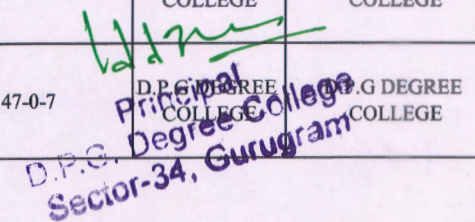 COLLEGE COLLEGE
47-0-7 D.P.G DEGREE COLLEGE D.P.G DEGREE COLLEGE
Principal
D.P.G. Degree College
Sector-34, Gurugram